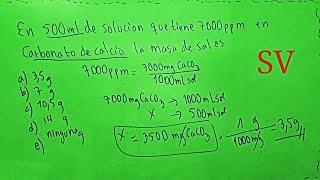 En 500ml de solucion que tiene 7000ppm en
Carbonato de calcio la masa de sal es
a) 3,5g
b) 7 g
c) 10,5 g
d) 14 g
e) ninguno
7000ppm = 7000mg CaCO3 / 1000ml sol
7000mg CaCO3 → 1000ml sol
X → 500ml sol
X = 3500 mg CaCO3 . 1 g / 1000mg = 3,5g
SV